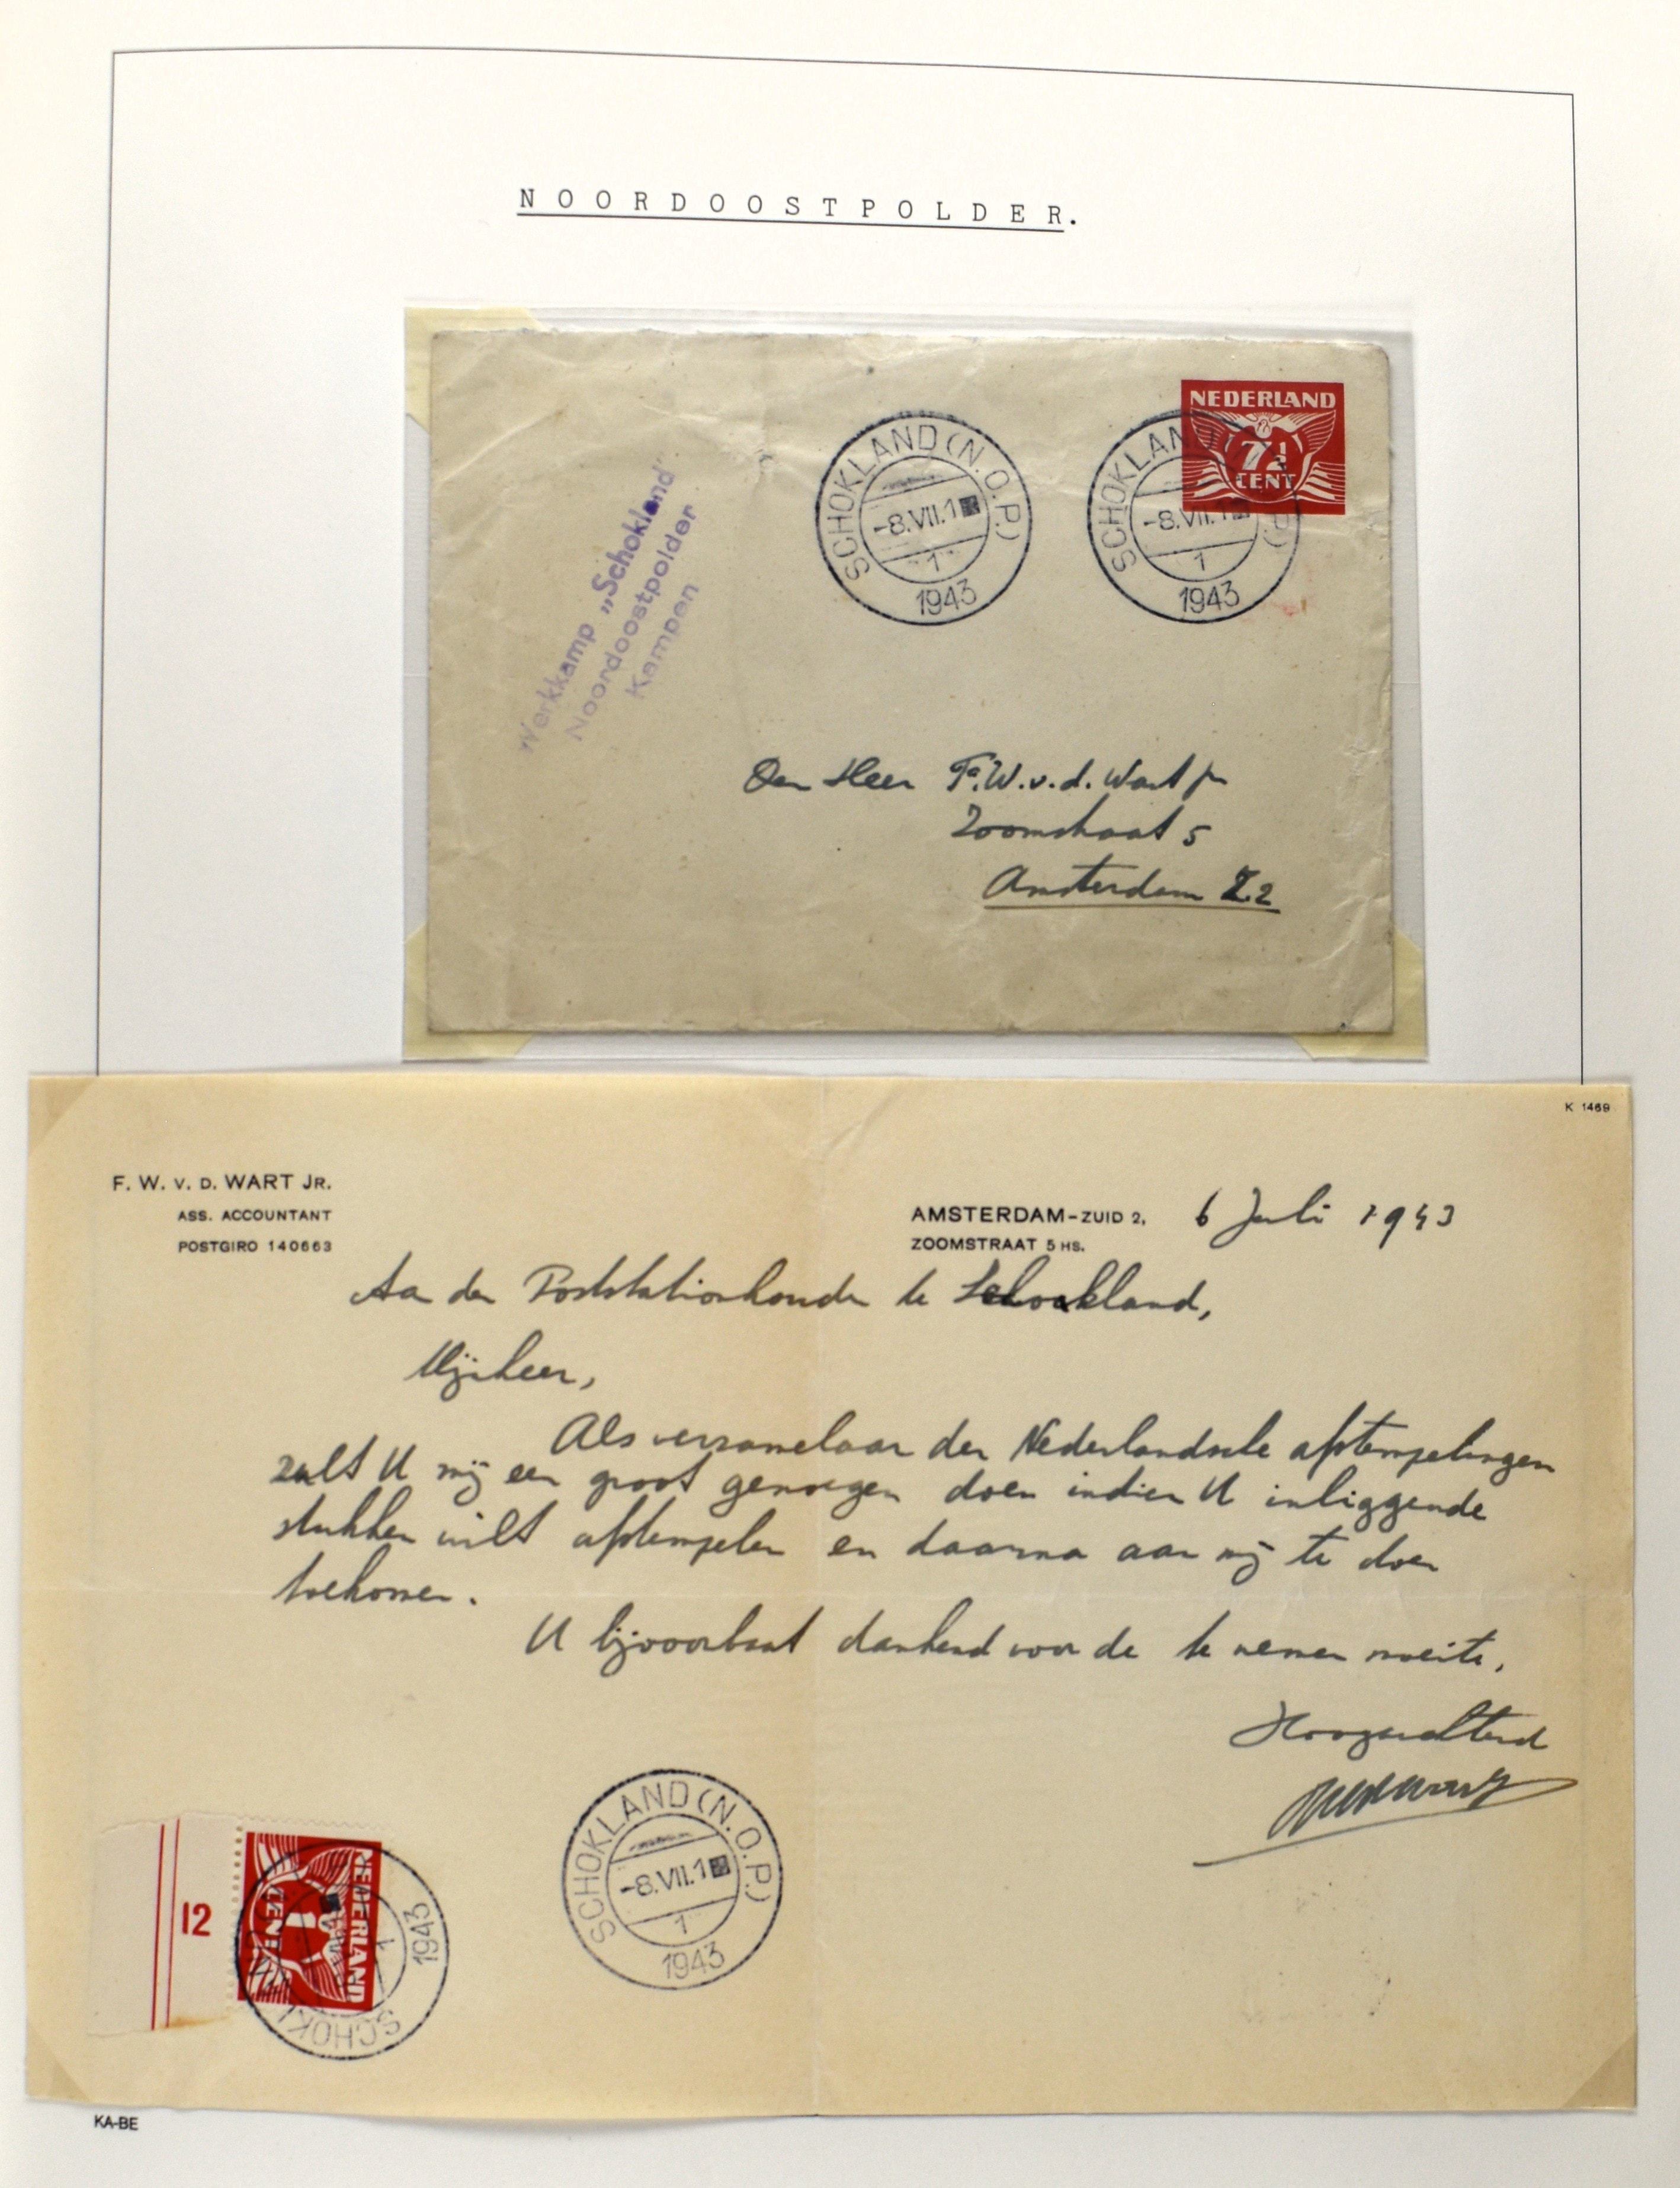 NOORDOOSTPOLDER.
NEDERLAND
7½
CENT
SCHOKLAND (N.O.P.)
-8.VII.1
1
1943
SCHOKLAN P.)
-8.VII.1
1
1943
Werkkamp „Schokland"
Noordoostpolder
Kampen
Den Heer F.W.v.d. Wart jr
Zoomstraat 5
Amsterdam Z.2
K 1469
F. W. v. D. WART JR.
ASS. ACCOUNTANT
POSTGIRO 140663
AMSTERDAM-ZUID 2, 6 Juli 1943
ZOOMSTRAAT 5 HS.
Aan den Poststationhouder te Schokland,
Mijnheer,
Als verzamelaar der Nederlandsche afstempelingen
zult U mij een groot genoegen doen indien U inliggende
stukken wilt afstempelen en daarna aan mij te doen
toekomen.
U bijvoorbaat dankend voor de te nemen moeite,
Hoogachtend
12
NEDERLAND
CENT
SCHOKL
1
1943
SCHOKLAND (N.O.P.)
-8.VII.1
1
1943
KA-BE